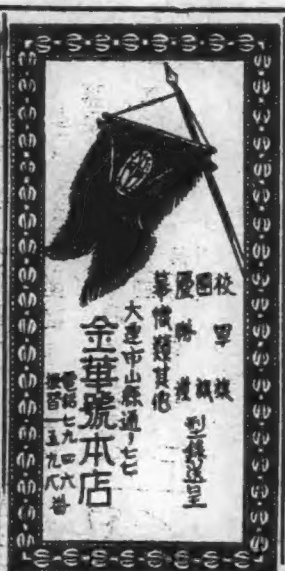 校旗 軍旗
團旗
優勝旗
型録送呈
幕幟類其他
大連市山縣通一七七
金華號本店
電話七九四六
振替一五九八番